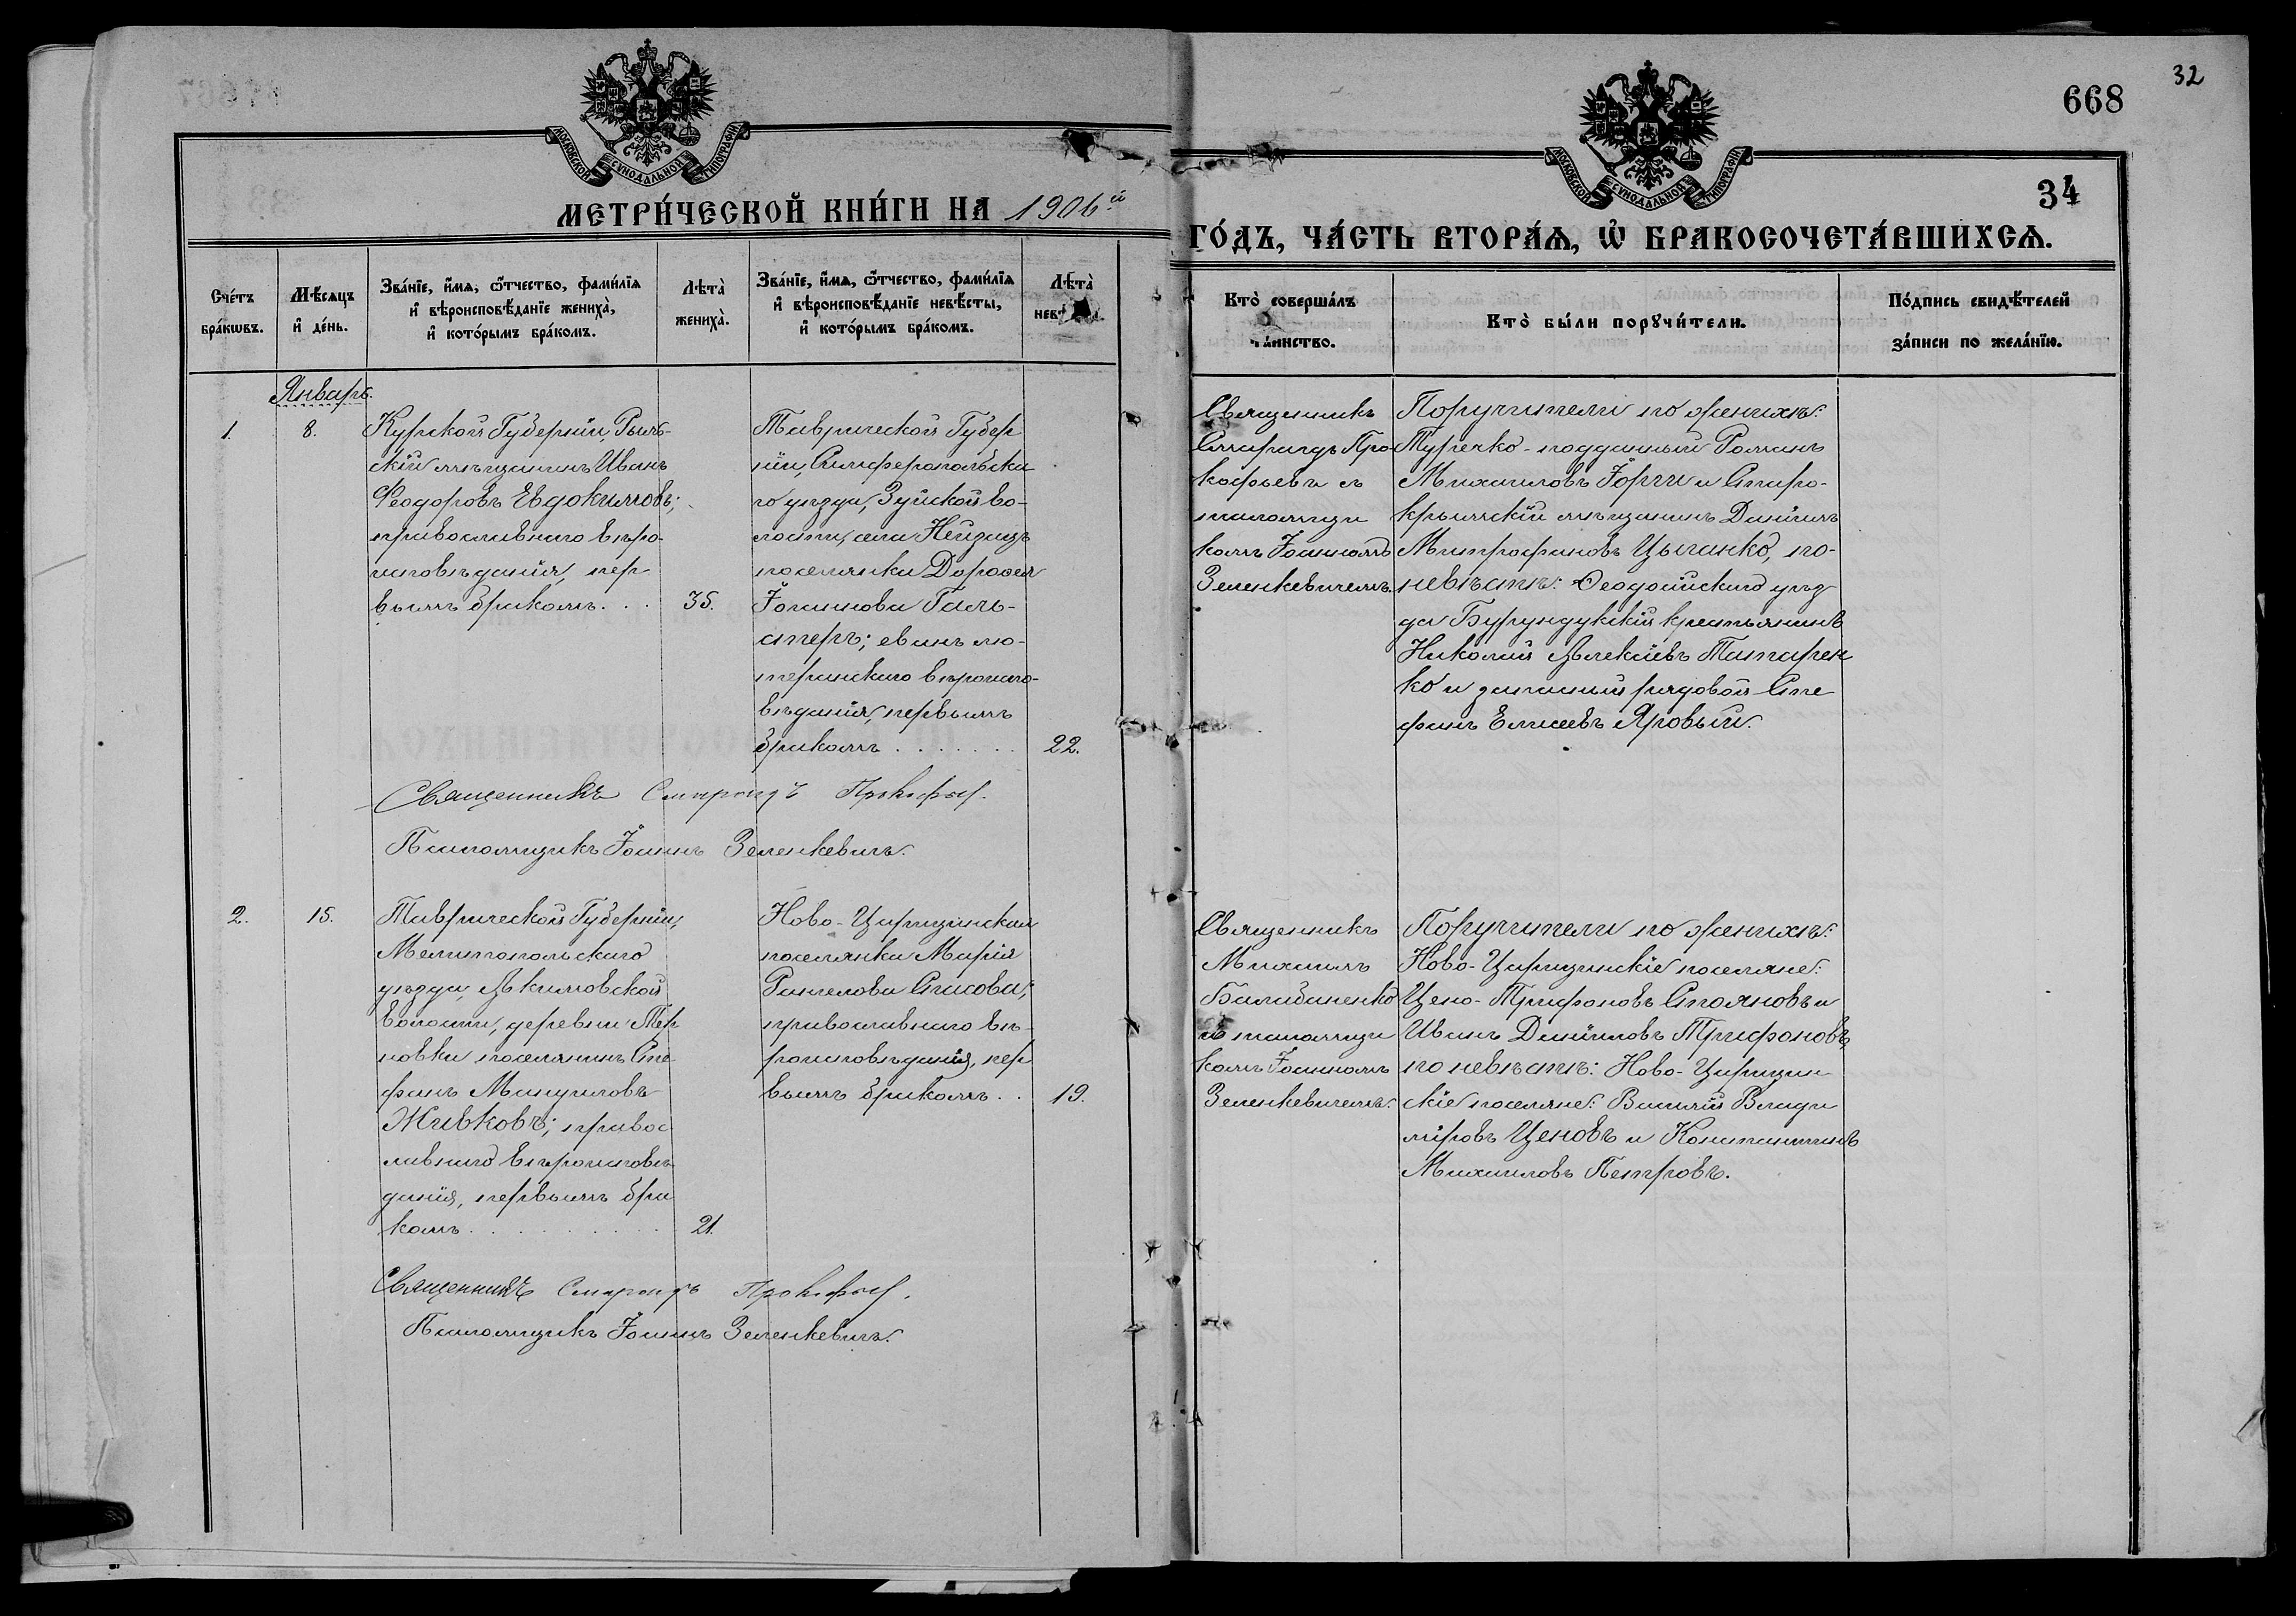 668
32
34
МОСКОВСКОЙ СѴНОДАЛЬНОЙ ТИПОГРАФІИ
МОСКОВСКОЙ СѴНОДАЛЬНОЙ ТИПОГРАФІИ
МЕТРИ́ЧЕСКОЙ КНИ́ГИ НА 1906й
ГО́ДЪ, ЧА́СТЬ ВТОРА́Ѧ, Ѽ БРАКОСОЧЕТА́ВШИХСѦ.
Сче́тъ бра́кѡвъ.
Мѣ́сяцъ и҆ де́нь.
Зва́нїе, и҆́мѧ, ѻ҆́тчество, фами́лїѧ и҆ вѣроисповѣ́данїе жениха̀, и҆ кото́рымъ бра́комъ.
Лѣта̀ жениха̀.
Зва́нїе, и҆́мѧ, ѻ҆́тчество, фами́лїѧ и҆ вѣроисповѣ́данїе невѣ́сты, и҆ кото́рымъ бра́комъ.
Лѣта̀
Кто̀ соверша́лъ та́инство.
Кто̀ бы́ли порꙋчи́тели.
По́дпись свидѣ́телей за́писи по жела́нїю.
Январь.
1.
8.
Курской Губерніи, Рыль-
скій мѣщанинъ Иванъ
Феодоровъ Евдокимовъ;
православнаго вѣро-
исповѣданія, пер
вымъ бракомъ. . .
35.
Таврической Губер
ніи, Симферопольска
го уѣзда, Зуйской во-
лости, села Нейзацъ
поселянка Дорофея
Іоаннова Галь-
стеръ; еванъ лю-
теранскаго вѣроиспо-
вѣданія, первымъ
бракомъ . . . . . . .
22.
Священникъ
Смарагдъ Про-
кофьевъ съ
псаломщи
комъ Іоанномъ
Зеленкевичемъ.
Поручители по женихѣ:
Турецко-подданный Романъ
Михаиловъ Іорги и Старо-
крымскій мѣщанинъ Даніилъ
Митрофановъ Цыганко, по-
невѣстѣ: Ѳеодосійскаго уѣз
да Бурундукскій крестьянинъ
Николай Алексѣевъ Татарен
ко и запасный рядовой Сте
фанъ Елисеевъ Яровый.
Священникъ Смарагдъ Прокофьев.
Псаломщикъ Іоаннъ Зеленкевичъ.
2.
15.
Таврической Губерніи,
Мелитопольскаго
уѣзда, Акимовской
волости, деревни
новки поселянинъ Сте
фанъ Мануиловъ
Живковъ; правос
лавнаго вѣроисповѣ
данія, первымъ бра
комъ . . . . . . . . .
21.
Ново-Царицинская
поселянка Марія
Рангелова Спасова;
православнаго вѣ-
роисповѣданія, пер
вымъ бракомъ . .
19.
Священникъ
Михаилъ
Балабаненко
съ псаломщи
комъ Іоанномъ
Зеленкевичемъ.
Поручители по женихѣ:
Ново-Царицинскіе поселяне:
Цено-Трифоновъ Стояновъ и
Иванъ Данііловъ Трифоновъ,
по невѣстѣ: Ново-Царицин
скіе поселяне: Василій Влади
міровъ Ценовъ и Константинъ
Михаиловъ Петровъ.
Священникъ Смарагдъ Прокофьев.
Псаломщикъ Іоаннъ Зеленкевичъ.